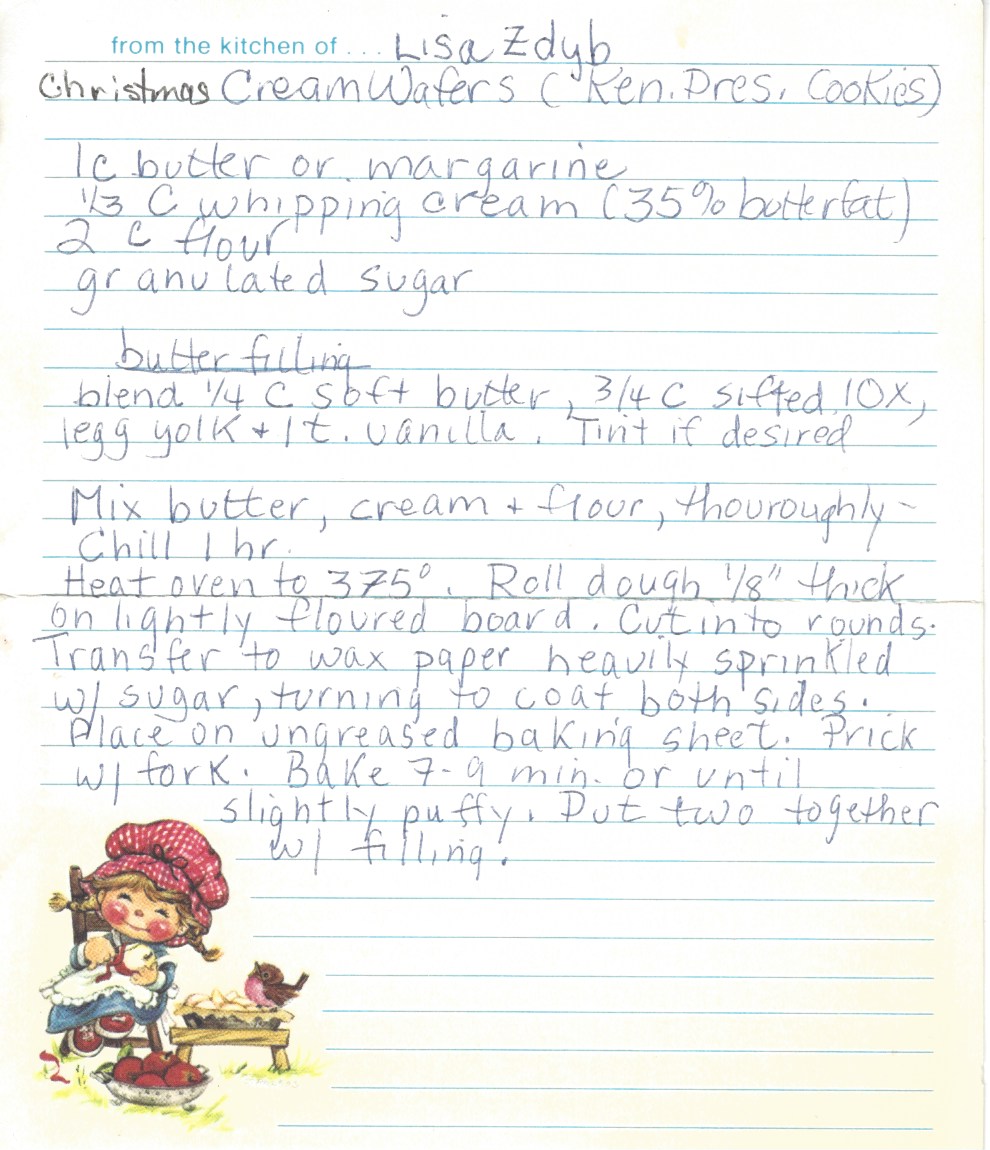 from the kitchen of ... Lisa Zdyb
Christmas Cream Wafers (Ken. Pres. Cookies)
1c butter or margarine
1/3 C whipping cream (35% butterfat)
2 c flour
granulated sugar
butter filling
blend 1/4 C soft butter, 3/4 C sifted 10X,
1 egg yolk + 1 t. vanilla. Tint if desired
Mix butter, cream + flour, thouroughly -
Chill 1 hr.
Heat oven to 375°. Roll dough 1/8" thick
on lightly floured board. Cut into rounds.
Transfer to wax paper heavily sprinkled
w/ sugar, turning to coat both sides.
Place on ungreased baking sheet. Prick
w/ fork. Bake 7-9 min. or until
slightly puffy. Put two together
w/ filling.
2